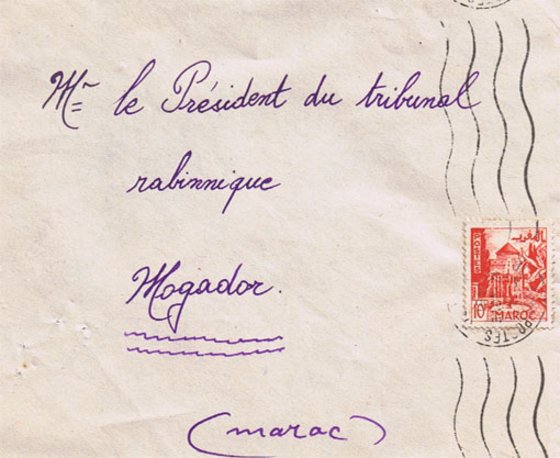 Mr le Président du tribunal
rabinnique
Mogador.
(maroc)
المغرب
POSTES
10F
MAROC